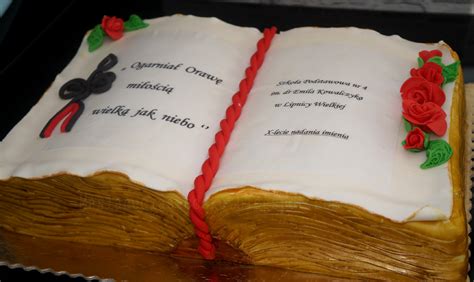 „Ogarniał Orawę
miłością
wielką jak niebo”
Szkoła Podstawowa nr 4
im. dr Emila Kowalczyka
w Lipnicy Wielkiej
X-lecie nadania imienia